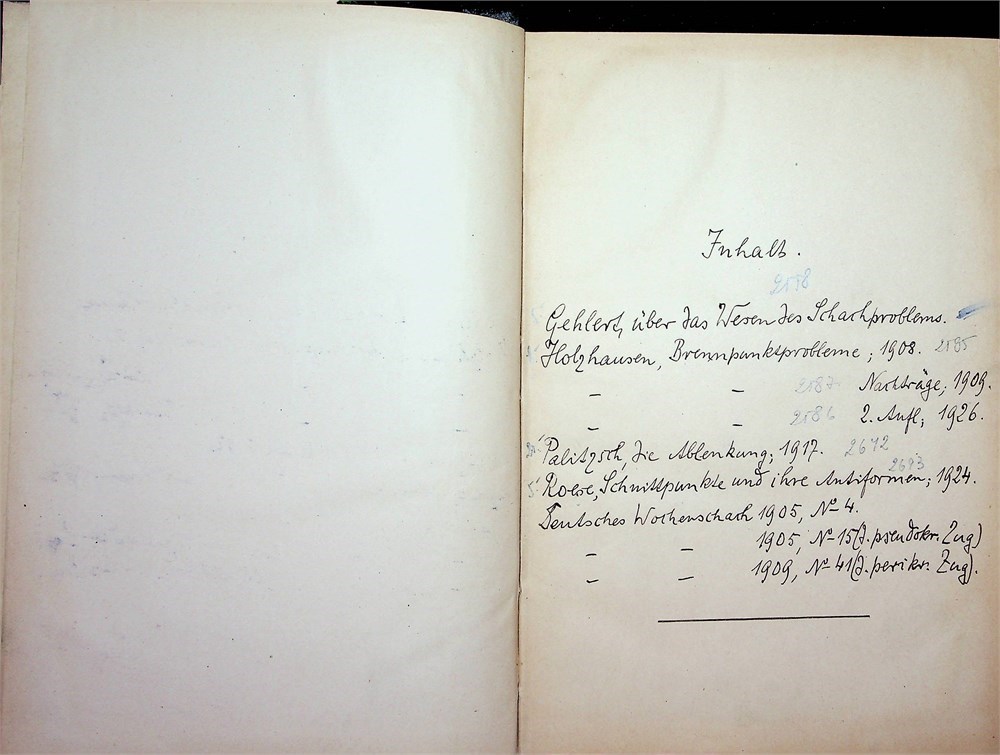 Inhalt.
2558
Gehlert, über das Wesen des Schachproblems.
Holzhausen, Brennpunktprobleme; 1908. 2585
– – 2587 Nachträge; 1909.
– – 2586 2. Aufl; 1926.
Palitzsch, die Ablenkung; 1917. 2672
2693
Kowe, Schnittpunkte und ihre Antiformen; 1924.
Deutsches Wochenschach 1905, No 4.
– – 1905, No 15 (d. pseudokr. Zug)
– – 1909, No 41 (d. perikr. Zug).